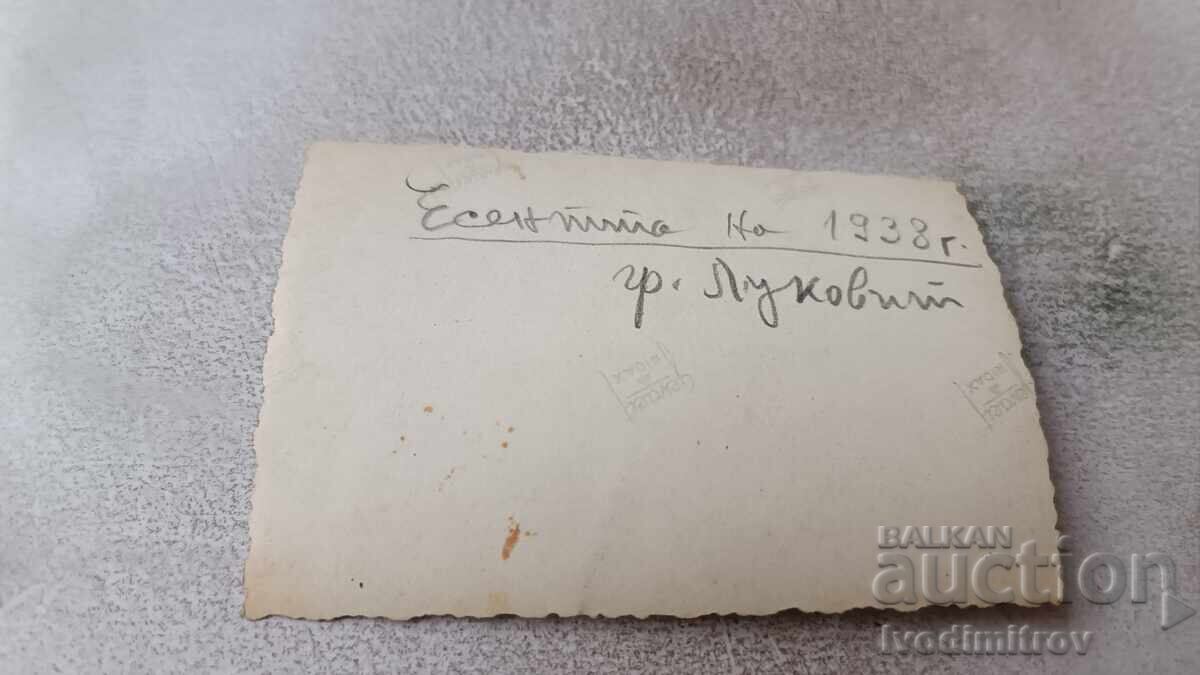 Есентта на 1938 г.
гр. Луковит
BALKAN
auction
Ivodimitrov